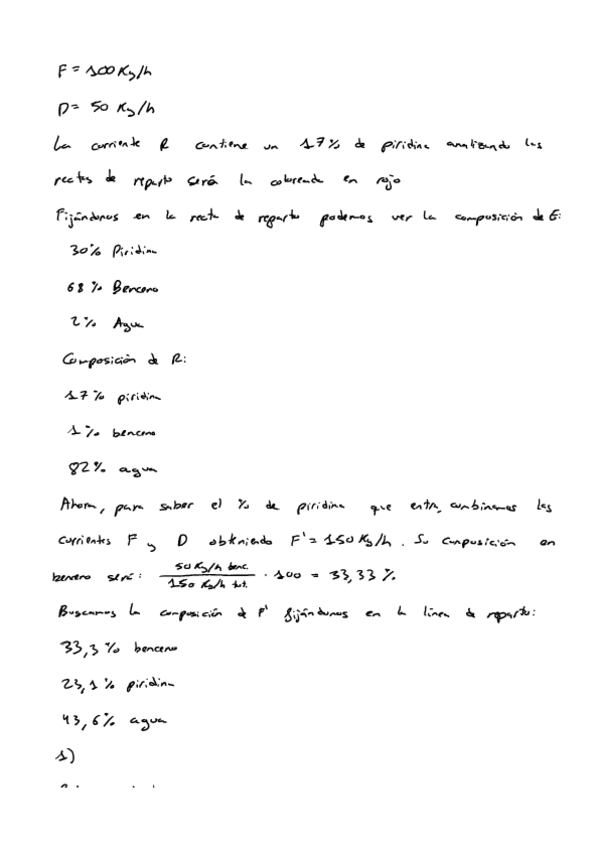 F = 100 Kg/h
D = 50 Kg/h
La corriente R contiene un 17% de piridina analizando las
rectas de reparto será la coloreada en rojo
Fijándonos en la recta de reparto podemos ver la composición de E:
30% Piridina
68% Benceno
2% Agua
Composición de R:
17% piridina
1% benceno
82% agua
Ahora, para saber el % de piridina que entra, combinamos las
corrientes F y D obteniendo F' = 150 Kg/h. Su composición en
benceno será: 50 Kg/h benc. / 150 Kg/h tot. · 100 = 33,33 %
Buscamos la composición de F' fijándonos en la línea de reparto:
33,3 % benceno
23,1 % piridina
43,6 % agua
1)